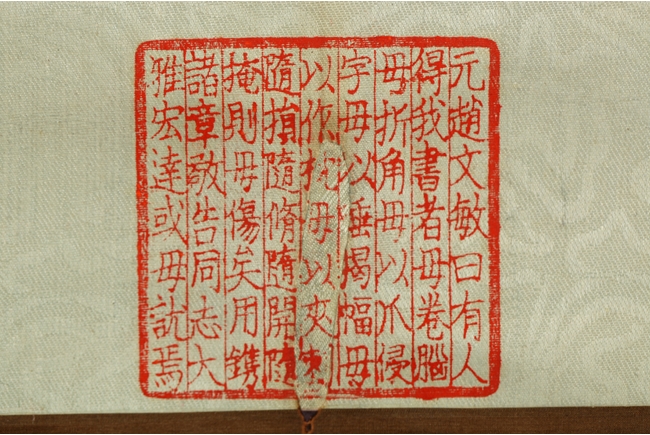 元趙文敏曰有人
得我書者毋卷腦
毋折角毋以爪侵
字毋以唾揭幅毋
以作枕毋以夾
隨損隨脩隨開隨
掩則毋傷矣用鐫
諸章敬告同志大
雅宏達或毋訧焉